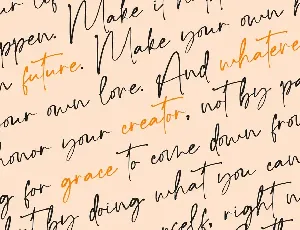 our
ppen. Make it
future. Make your own
our own love. And whatever
honor your creator, not by pa
g for grace to come down from
but by doing what you can
rself, right n